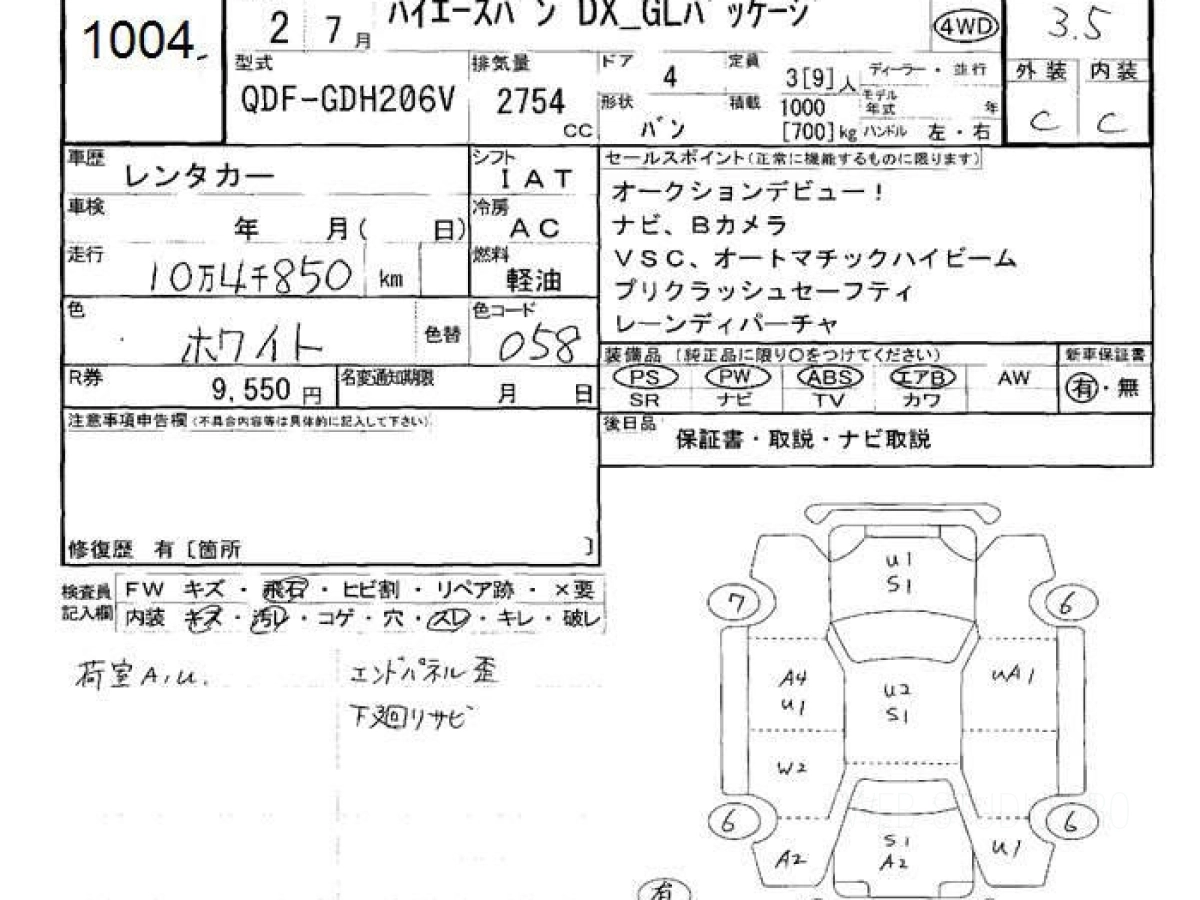 1004
2 7 月
ハイエースバン DX_GLパッケージ
4WD
3.5
型式
QDF-GDH206V
排気量
2754
CC
ドア
4
定員
3[9]人
ディーラー・並行
外装 内装
形状
バン
積載
1000
[700]kg
モデル
年式
年
ハンドル 左・右
C C
車歴
レンタカー
シフト
IAT
車検
年 月( 日)
冷房
AC
走行
10万4千850 km
燃料
軽油
色
ホワイト
色替
色コード
058
R券
9,550 円
名変通知期限
月 日
セールスポイント(正常に機能するものに限ります)
オークションデビュー!
ナビ、Bカメラ
VSC、オートマチックハイビーム
プリクラッシュセーフティ
レーンディパーチャ
装備品 (純正品に限り○をつけてください)
新車保証書
PS PW ABS エアB AW
SR ナビ TV カワ
有・無
後日品
保証書・取説・ナビ取説
注意事項申告欄(不具合内容等は具体的に記入して下さい)
修復歴 有[箇所 ]
検査員
記入欄
FW キズ・飛石・ヒビ割・リペア跡・×要
内装 キズ・汚レ・コゲ・穴・スレ・キレ・破レ
荷室A,U.
エンドパネル歪
下廻リサビ
U1
S1
7
6
A4
U1
U2
S1
UA1
W2
6
6
A2
S1
A2
U1
有